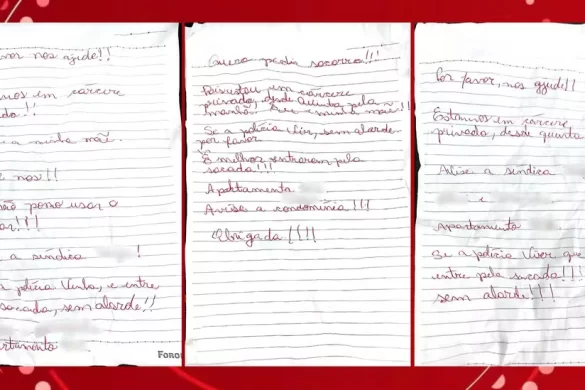 vor nos ajude!!
mos em cárcere
do!!
a minha mãe.
e nos!!
não posso usar o
ar!!!
a síndica !
a polícia venha, e entre
sacada, sem alarde!!
artamento
Foron
Quero pedir socorro!!!
Pois estou em cárcere
privado, desde quinta pela
manhã. Eu e minha mãe!!!
Se a polícia vier, sem alarde
por favor
É melhor entrarem pela
sacada!!!
Apartamento
Avise a condomínio!!!
Obrigada!!!!
Por favor, nos ajude!!
Estamos em cárcere
privado, desde quinta
Avise a síndica
e
Apartamento
Se a polícia vier que
entre pela sacada!!!
sem alarde!!!